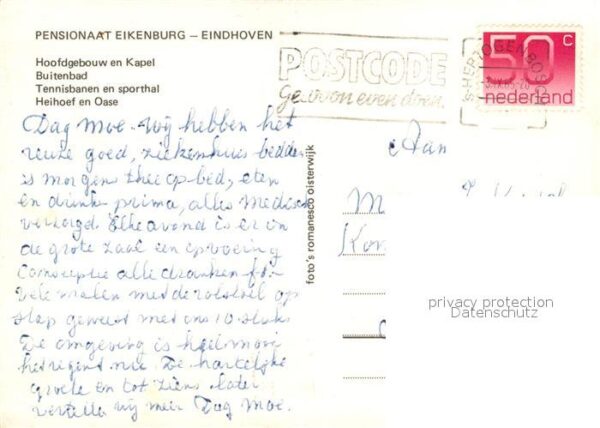 PENSIONAAT EIKENBURG — EINDHOVEN
Hoofdgebouw en Kapel
Buitenbad
Tennisbanen en sporthal
Heihoef en Oase
POSTCODE
gewoon even doen.
'S-HERTOGENBOSCH
50 c
nederland
Dag Moe. Wij hebben het
reuze goed, ziekenhuis bedden
is morgens thee op bed, eten
en drinke prima, alles Medisch
verzorgd. Elke avond is er in
de grote zaal een opvoering
Consumptie alle dranken
vele malen met de rolstoel op
stap geweest met ons 10 stuks.
De omgeving is heel mooi
het regent nie. De hartelijke
groete en tot ziens later
vertelle wij meer Dag Moe.
foto's romanesco oisterwijk
Aan
M
privacy protection
Datenschutz